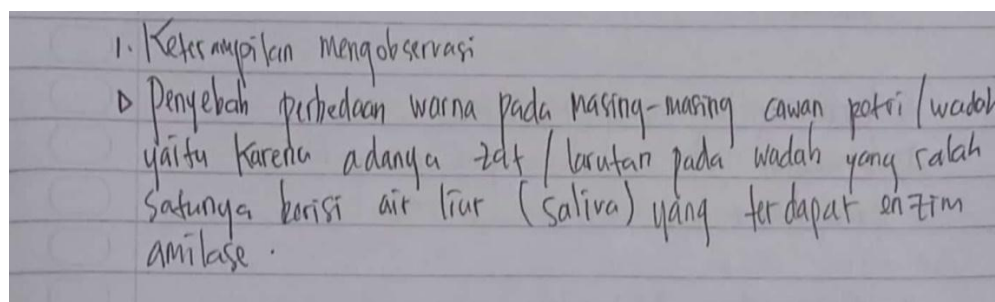 1. Keterampilan mengobservasi
D Penyebab perbedaan warna pada masing-masing cawan petri / wadah
yaitu karena adanya zat / larutan pada wadah yang salah
satunya berisi air liur (saliva) yang terdapat enzim
amilase.